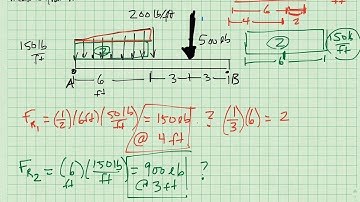 200 lb/ft
150 lb
ft
500 lb
②
A
6
ft
3
3
B
6
4
2
②
6
150 lb
ft
F_R1 = (1/2)(6ft)(50 lb/ft) = 150 lb @ 4 ft ? (1/3)(6) = 2
F_R2 = (6 ft)(150 lb/ft) = 900 lb @ 3 ft ?